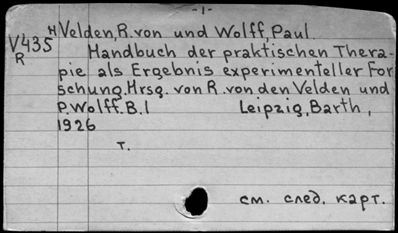 -1-
H Velden, R. von und Wolff, Paul
V435
R
Handbuch der praktischen Thera-
pie als Ergebnis experimenteller For
schung. Hrsg. von R. von den Velden und
P. Wolff. B. I Leipzig, Barth,
1926
T.
см. след. карт.